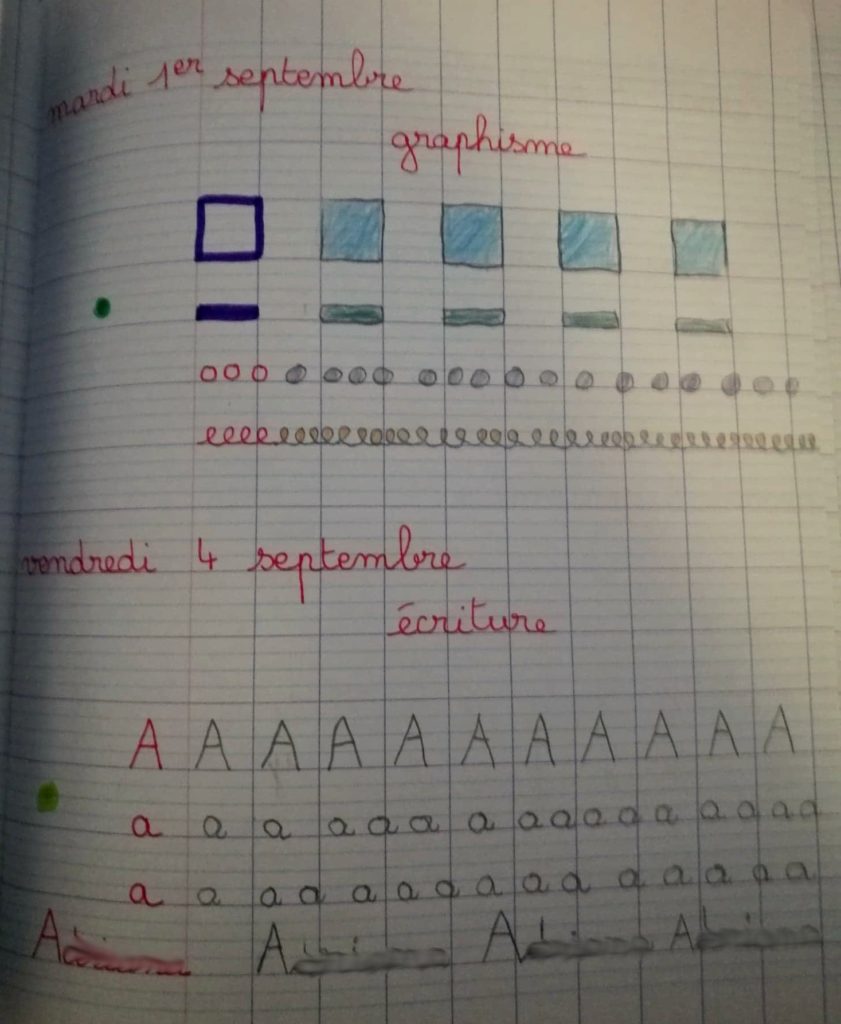 mardi 1er septembre
graphisme
o o o o o o o o o o o o o o o o o o o
eeeeeeeeeeeeeeeeeeeeeeeeeeeeeeeeeeee
vendredi 4 septembre
écriture
A A A A A A A A A A A
a a a a a a a a a a a a a a a a
a a a a a a a a a a a a a a a
A A A A